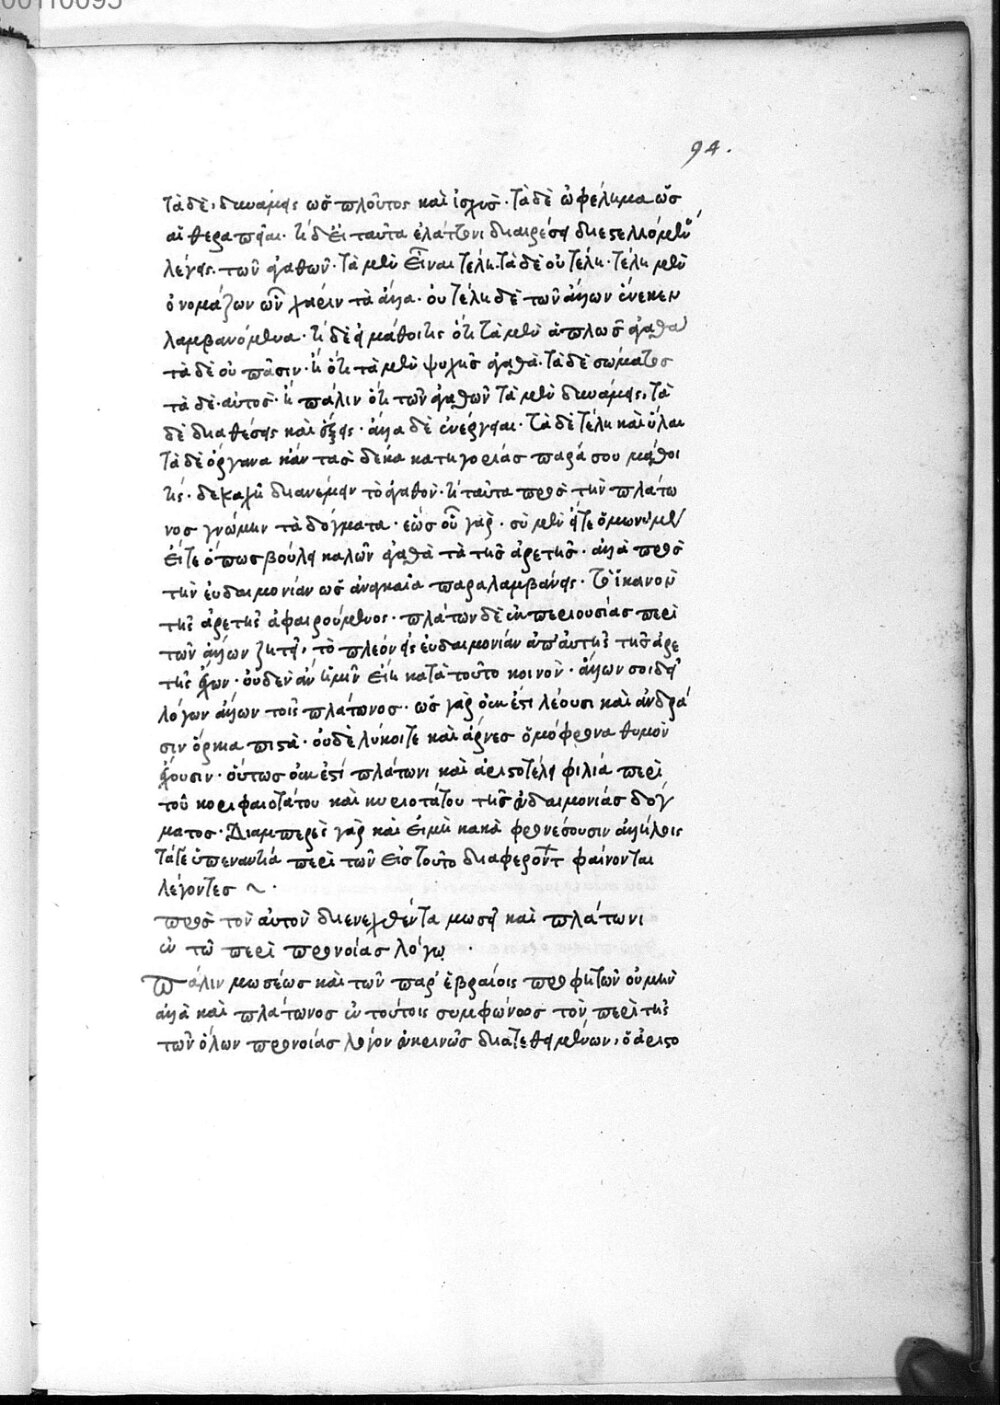 00110095
94.
τὰ δὲ, δυνάμεις ὡς πλοῦτος καὶ ἰσχύς· τὰ δὲ ὠφέλιμα ὡς
αἱ θεραπεῖαι· τί δ' εἰ ταῦτα ἐλάττονι διαιρέσει διεστελλόμεν
λέγεις· τῶν ἀγαθῶν· τὰ μὲν εἶναι τέλη· τὰ δὲ οὐ τέλη· τέλη μὲν
ὀνομάζων ὧν χάριν τὰ ἄλλα· οὐ τέλη δὲ τῶν ἄλλων ἕνεκεν
λαμβανόμενα· τί δὲ εἰ μάθοι τις ὅτι τὰ μὲν ἁπλῶς ἀγαθὰ
τὰ δὲ οὐ πᾶσιν· ἢ ὅτι τὰ μὲν ψυχῆς ἀγαθὰ· τὰ δὲ σώματος
τὰ δὲ· αὐτὸς· ἢ πάλιν ὅτι τῶν ἀγαθῶν τὰ μὲν δυνάμεις, τὰ
δὲ διαθέσεις καὶ ἕξεις· ἄλλα δὲ ἐνέργειαι· τὰ δὲ τέλη καὶ ὗλαι
τὰ δὲ ὄργανα κἂν τὰς δέκα κατηγορίας παρά σου μάθοι
τίς· δεκαχῆ διανέμειν τὸ ἀγαθὸν· τί ταῦτα πρὸς τὴν πλάτω
νος γνώμην τὰ δόγματα· ἕως οὗ γὰρ· σὺ μὲν εἴτε ὁμωνύμως
εἴτε ὅπως βούλει καλῶν ἀγαθὰ τὰ τῆς ἀρετῆς· ἄλλα πρὸς
τὴν εὐδαιμονίαν ὡς ἀναγκαῖα παραλαμβάνεις· τὸ ἱκανὸν
τῆς ἀρετῆς ἀφαιρούμενος· πλάτων δὲ ἐκ περιουσίας περὶ
τῶν ἄλλων ζητεῖ, τὸ πλέον εἰς εὐδαιμονίαν ἀπ' αὐτῆς τῆς ἀρε
τῆς ἔχων· οὐδὲν ἂν ὑμῖν εἴη κατὰ τοῦτο κοινὸν· ἄλλων σοι δεῖ
λόγων ἄλλων τοῖς πλάτωνος· ὡς γὰρ οὐκ ἔστι λέουσι καὶ ἀνδρά
σιν ὅρκια πιστὰ· οὐδὲ λύκοι τε καὶ ἄρνες ὁμόφρονα θυμὸν
ἔχουσιν· οὕτως οὐκ ἔστί πλάτωνι καὶ ἀριστοτέλει φιλία περὶ
τοῦ κορυφαιοτάτου καὶ κυριοτάτου τῆς εὐδαιμονίας δόγ
ματος· Διαμπερὲς γὰρ καὶ εἰ μὴ κακὰ φρονέουσιν ἀλλήλοις
τά γε ὑπεναντία περὶ τῶν εἰς τοῦτο διαφερόντ φαίνονται
λέγοντες ~·
πρὸς τὸν αὐτὸν διενεχθέντα μωσεῖ καὶ πλάτωνι
ἐν τῷ περὶ προνοίας λόγῳ ·
Πάλιν μωσέως καὶ τῶν παρ' ἑβραίοις προφητῶν οὐ μὴν
ἀλλὰ καὶ πλάτωνος ἐν τούτοις συμφώνως τὸν περὶ τῆς
τῶν ὅλων προνοίας λόγον εὐκρινῶς διατεθειμένων, ὁ ἀριστο